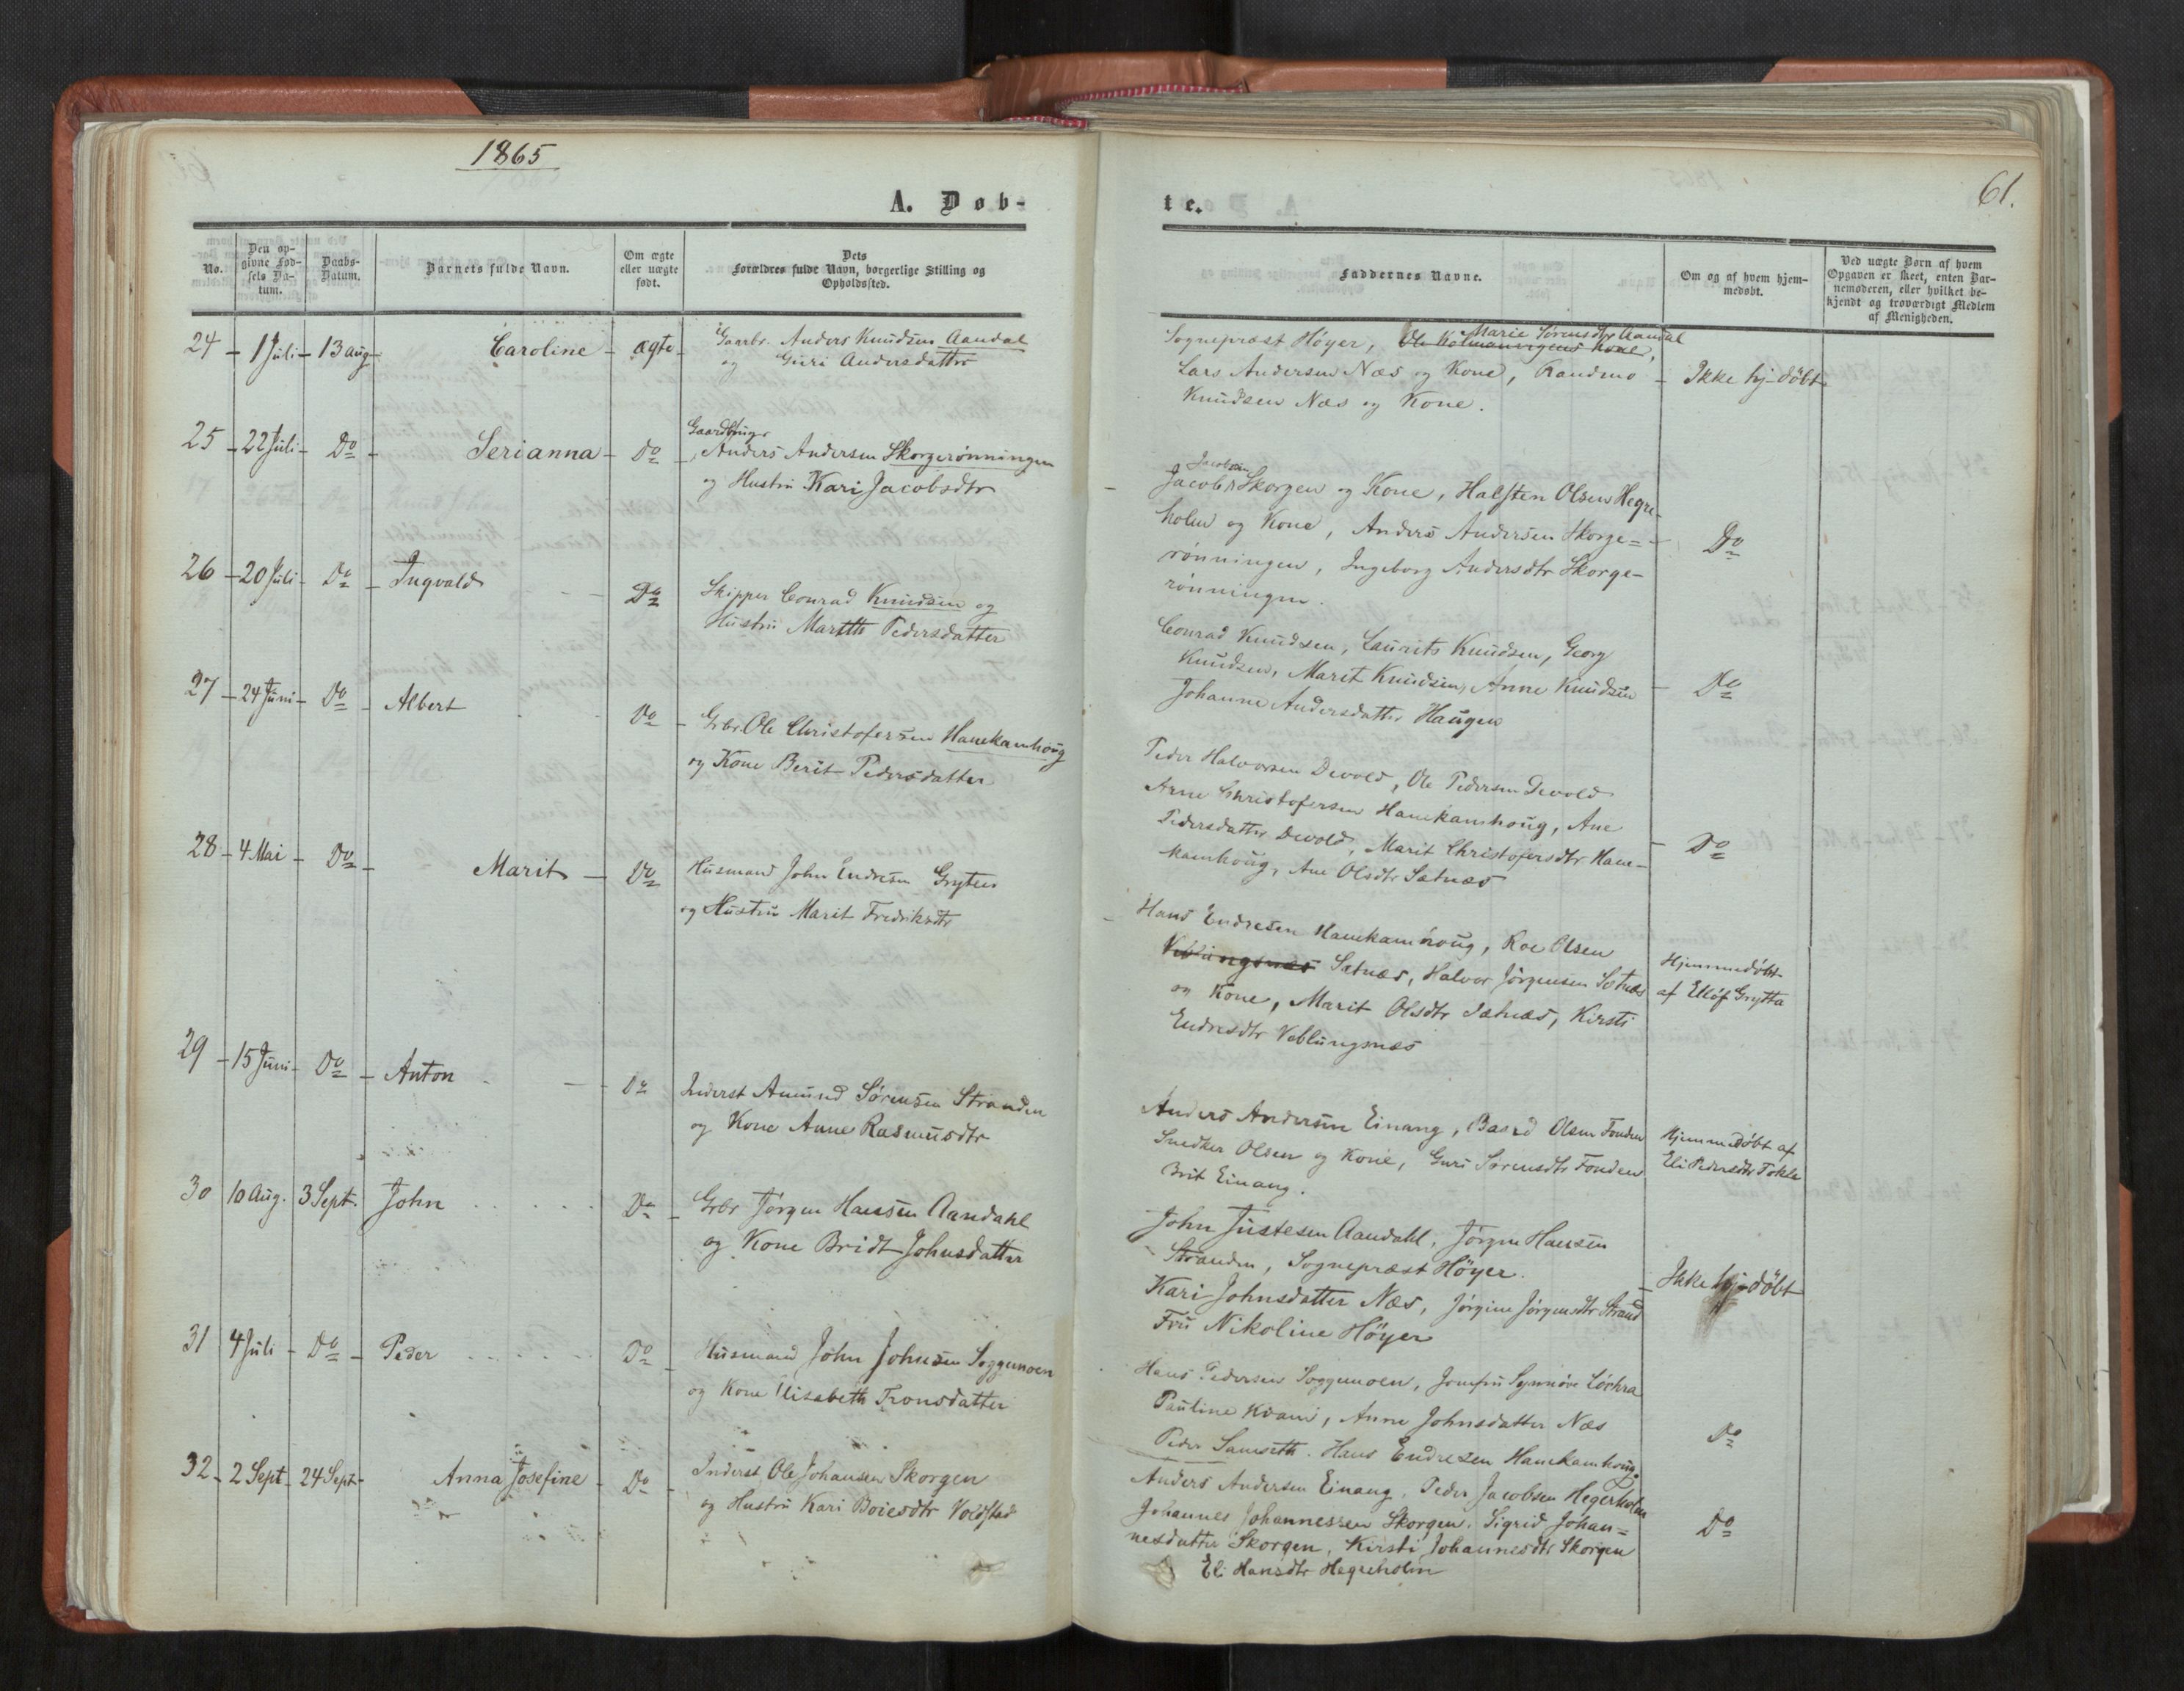 1865
A. Døb-
No.
Den op-
givne Fød-
sels Da-
tum.
Daabs-
Datum.
Barnets fulde Navn.
Om ægte
eller uægte
født.
Dets
Forældres fulde Navn, borgerlige Stilling og
Opholdssted.
24 - 1 Juli - 13 Aug - Caroline - ægte - Gaarbr. Anders Knudsen Aandal
og Guri Andersdatter
25 - 22 Juli - Do - Serianna - Do - Gaardbruger
Anders Andersen Skorgerønningen
og Hustru Kari Jacobsdtr
26 - 20 Juli - Do - Ingvald - Do Skipper Conrad Knudsen og
Hustru Marith Pedersdatter
27 - 24 Juni - Do - Albert Do - Gbr. Ole Christofersen Hanekamhoug
og Kone Berit Pedersdatter
28 - 4 Mai - Do - Marit - Do Husmand John Endresen Gryten
og Hustru Marit Fredriksdtr
29 - 15 Juni - Do - Anton - Do Inderst Amund Sørensen Stranden
og Kone Anne Rasmusdtr
30 10 Aug. 3 Sept. John Do - Gbr Jørgen Hansen Aandahl
og Kone Bridt Johnsdatter
31 4 Juli - Do - Peder Do - Husmand John Johnsen Soggemoen
og Kone Elisabeth Tronsdatter
32 - 2 Sept - 24 Sept - Anna Josefine - Do - Inderst Ole Johansen Skorgen
og Hustru Kari Boiesdtr Voldstad
te.
61.
Faddernes Navne.
Om og af hvem hjem-
medøbt.
Ved uægte Børn af hvem
Opgaven er skeet, enten Bar-
nemoderen, eller hvilket be-
kjendt og troværdigt Medlem
af Menigheden.
Marie Sørensdtr Aandal
Sognepræst Høyer, Ole Kone,
Lars Andersen Næs og Kone, Randmo - Ikke hj-døbt
Knudsen Næs og Kone.
Jacobsen
Jacob Skorgen og Kone, Halsten Olsen Hegre-
holm og Kone, Anders Andersen Skorge= - Do
rønningen, Ingeborg Andersdtr Skorge-
rønningen.
Conrad Knudsen, Laurits Knudsen, Georg
Knudsen, Marit Knudsen, Anne Knudsen - Do
Johanne Andersdatter Haugen
Peder Halvorsen Devold, Ole Pedersen Devold
Arne Christofersen Hanekamhoug, Ane
Pedersdatter Devold, Marit Christofersdtr Hane- - Do
kamhoug, Ane Olsdtr Sætnæs
Hans Endresen Hanekamhoug, Roe Olsen
Veblungsnæs Sætnæs, Halvor Jørgensen Sætnæs
og Kone, Marit Olsdtr Sætnæs, Kirsti
Endresdtr Veblungsnæs
Hjemmedøbt
af Ellöf Grytta
Anders Andersen Einang, Baard Olsen Fonden
Snedker Olsen og Kone, Guri Sørensdtr Fonden
Brit Einang.
Hjemmedøbt af
Eli Pedersdtr Tokle
John Justesen Aandahl, Jørgen Hansen
Stranden, Sognepræst Höyer.
Kari Johnsdatter Næs, Jørgine Jørgensdtr Strand
Fru Nikoline Höyer
- Ikke hj-døbt
Hans Pedersen Soggemoen, Jomfru Synnöve
Pauline Kvam, Anne Johnsdatter Næs Do
Peder Samseth. Hans Endresen Hanekamhoug.
Anders Andersen Einang. Peder Jacobsen Hegerholm
Johannes Johannessen Skorgen. Sigrid Johan= Do
nesdatter Skorgen, Kirsti Johannesdtr Skorgen
Eli Hansdtr Hegreholm